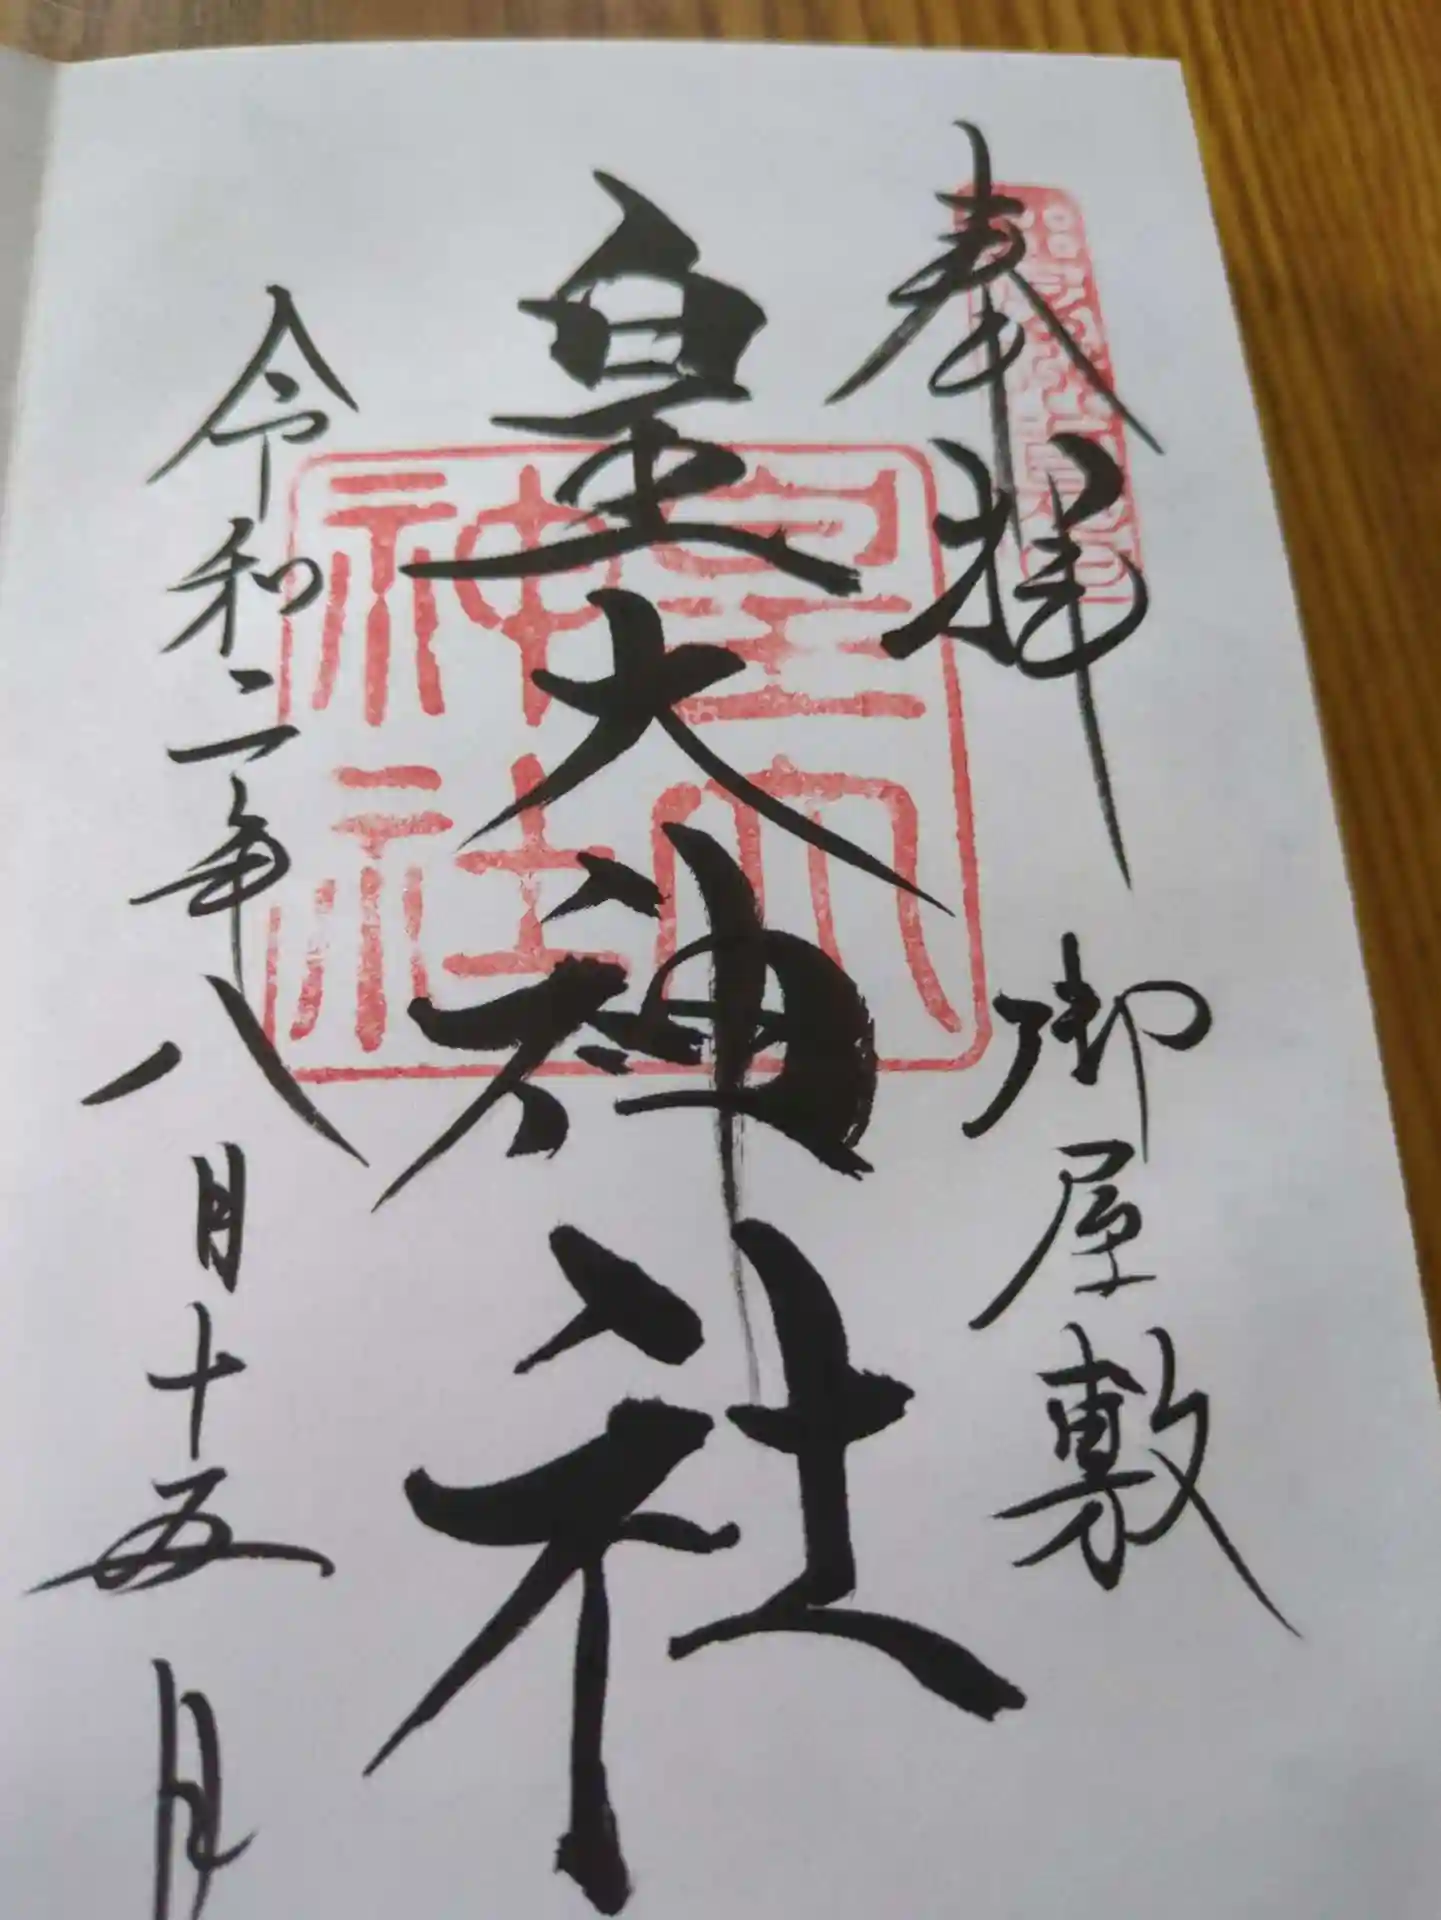 奉拝
御屋敷
皇大神社
皇大
神社
令和二年八月十五日